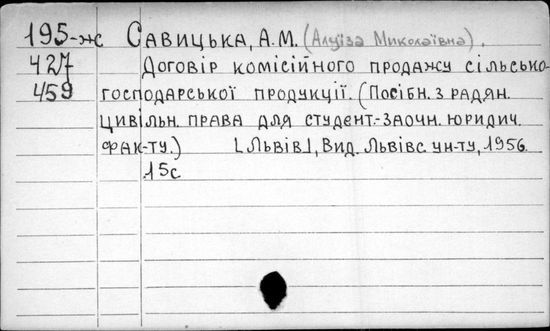 195-ж САВИЦЬКА, А.М. (Алуїза Миколаївна).
427 Договір комісійного продажу сільсько-
459 господарської продукції. (Посібн. з радян.
цивільн. права для студент.-заочн. юридич.
фак-ту.) [Львів], Вид. Львівс. ун-ту, 1956.
15с.